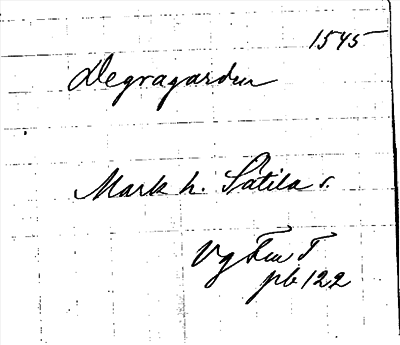 1545
Degragarden
Mark h. Sätila s.
Vg Fru T
pb 122